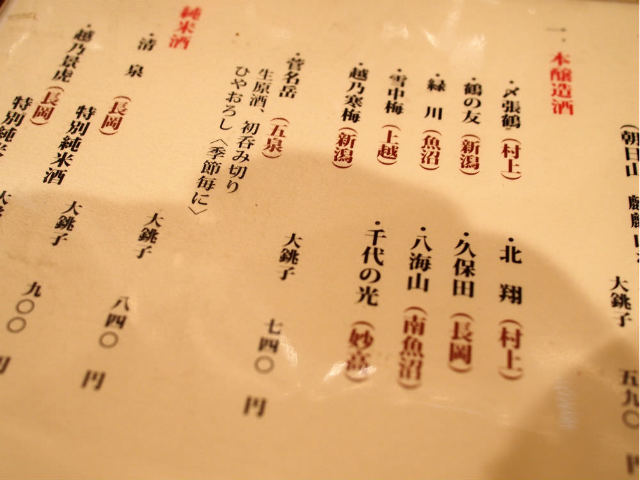 (朝日山
大銚子 五九〇 円
一、本醸造酒
・〆張鶴(村上) ・北 翔(村上)
・鶴の友(新潟) ・久保田(長岡)
・緑 川(魚沼) ・八海山(南魚沼)
・雪中梅(上越) ・千代の光(妙高)
・越乃寒梅(新潟)
・菅名岳(五泉)
生原酒、初呑み切り
ひやおろし〈季節毎に〉
大銚子 七四〇 円
純米酒
・清 泉(長岡) 大銚子 八四〇 円
・越乃景虎(長岡) 特別純米酒 大銚子 九〇〇 円
特別純米